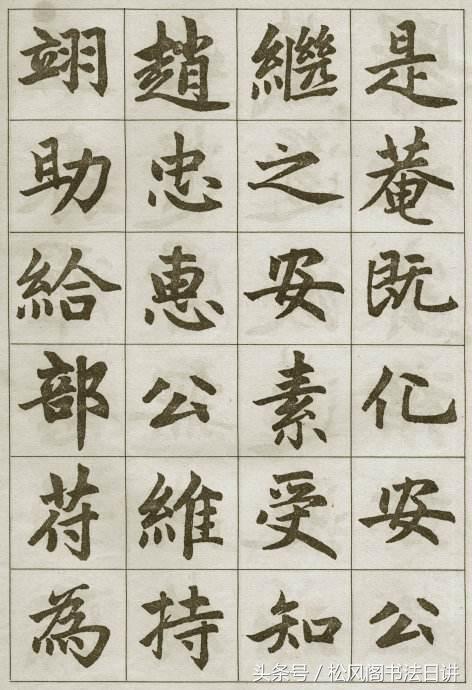 是菴既化安公
繼之安素受知
趙忠惠公維持
翊助給部苻為
头条号 / 松风阁书法日讲